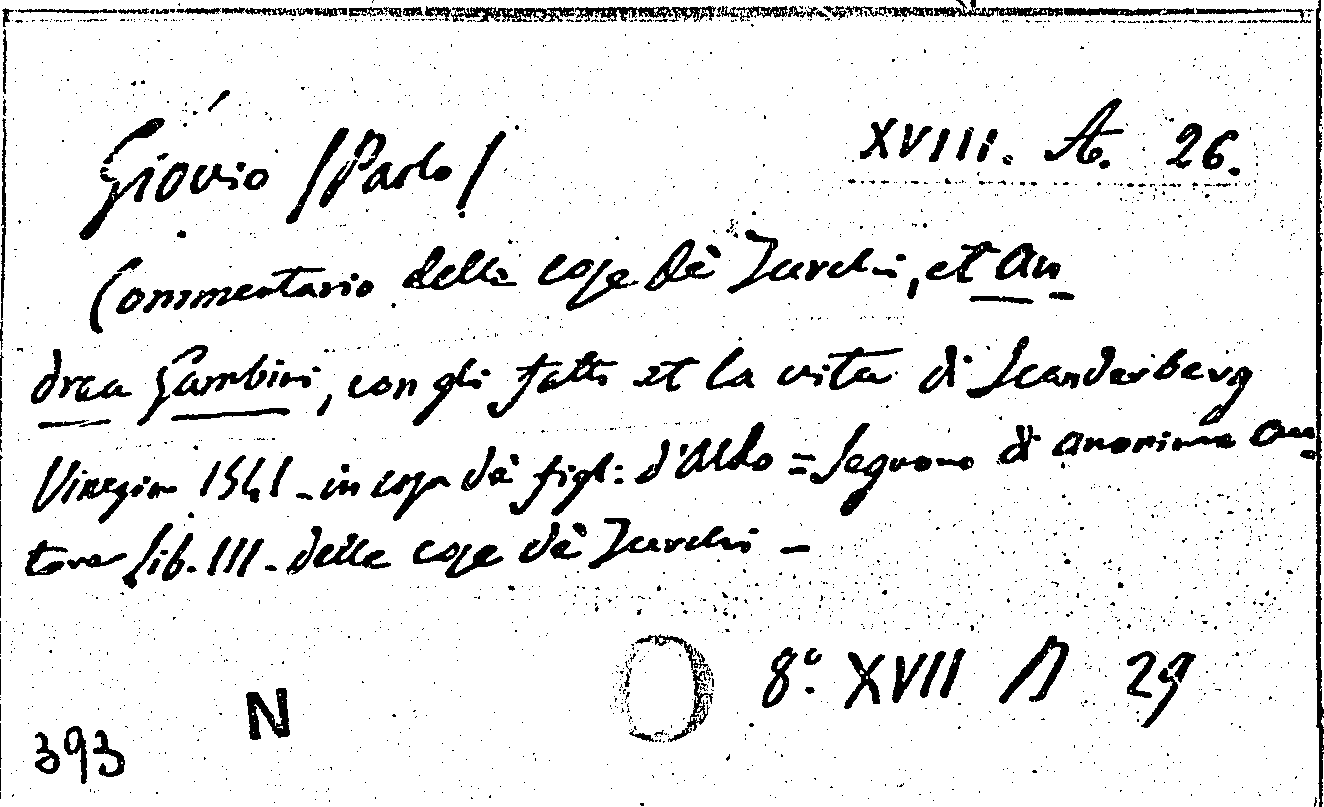 Giovio /Paolo/ XVIII. A. 26.
Commentario delle cose dè Turchi, et An
drea Gambini, con gli fatti et la vita di Scanderberg
Vinegia 1541 - in casa dè figli: d'Aldo = Seguono di anonimo au-
tore Lib. III. delle cose dè Turchi -
O 8.° XVII 29
N
393